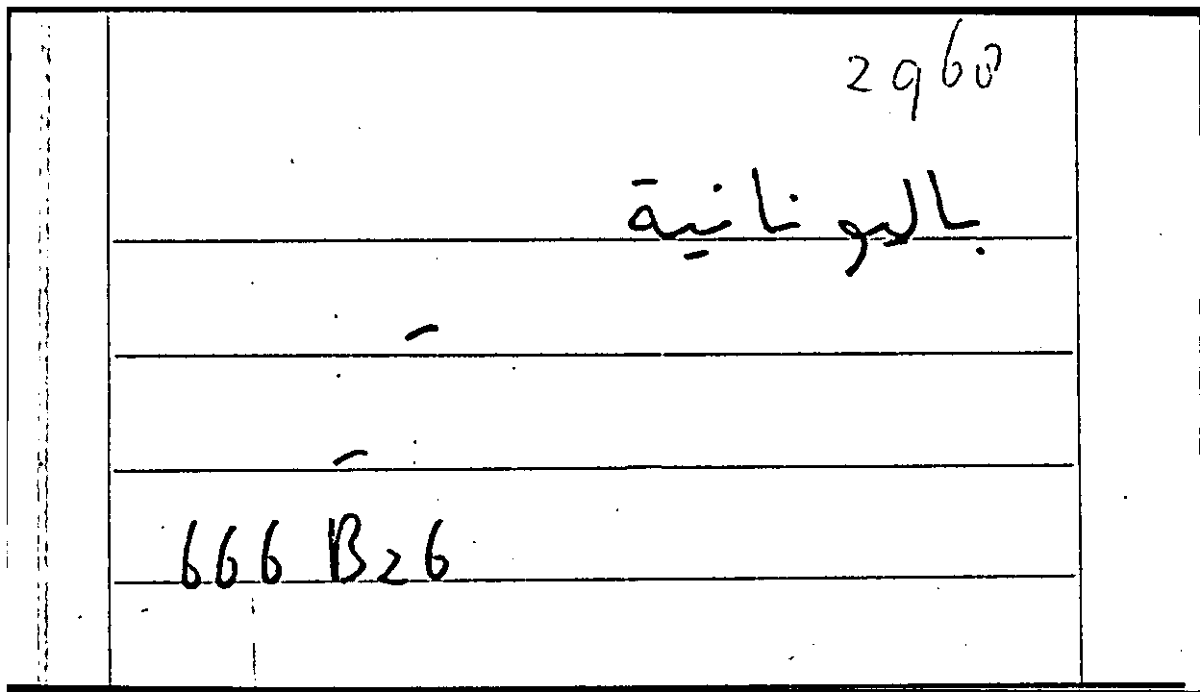 2960
باليونانية
-
-
666 B26